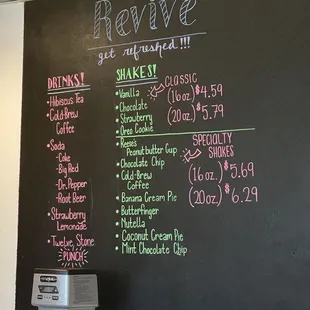 Revive
get refreshed!!!
DRINKS!
• Hibiscus Tea
• Cold-Brew
Coffee
• Soda
- Coke
- Big Red
- Dr. Pepper
- Root Beer
• Strawberry
Lemonade
• Twelve Stone
PUNCH
SHAKES!
• Vanilla
• Chocolate
• Strawberry
• Oreo Cookie
CLASSIC
(16 oz.) $4.59
(20 oz.) $5.79
• Reese's
Peanut butter Cup
• Chocolate Chip
• Cold-Brew
Coffee
• Banana Cream Pie
• Butterfinger
• Nutella
• Coconut Cream Pie
• Mint Chocolate Chip
SPECIALTY
SHAKES
(16 oz.) $5.69
(20 oz.) $6.29